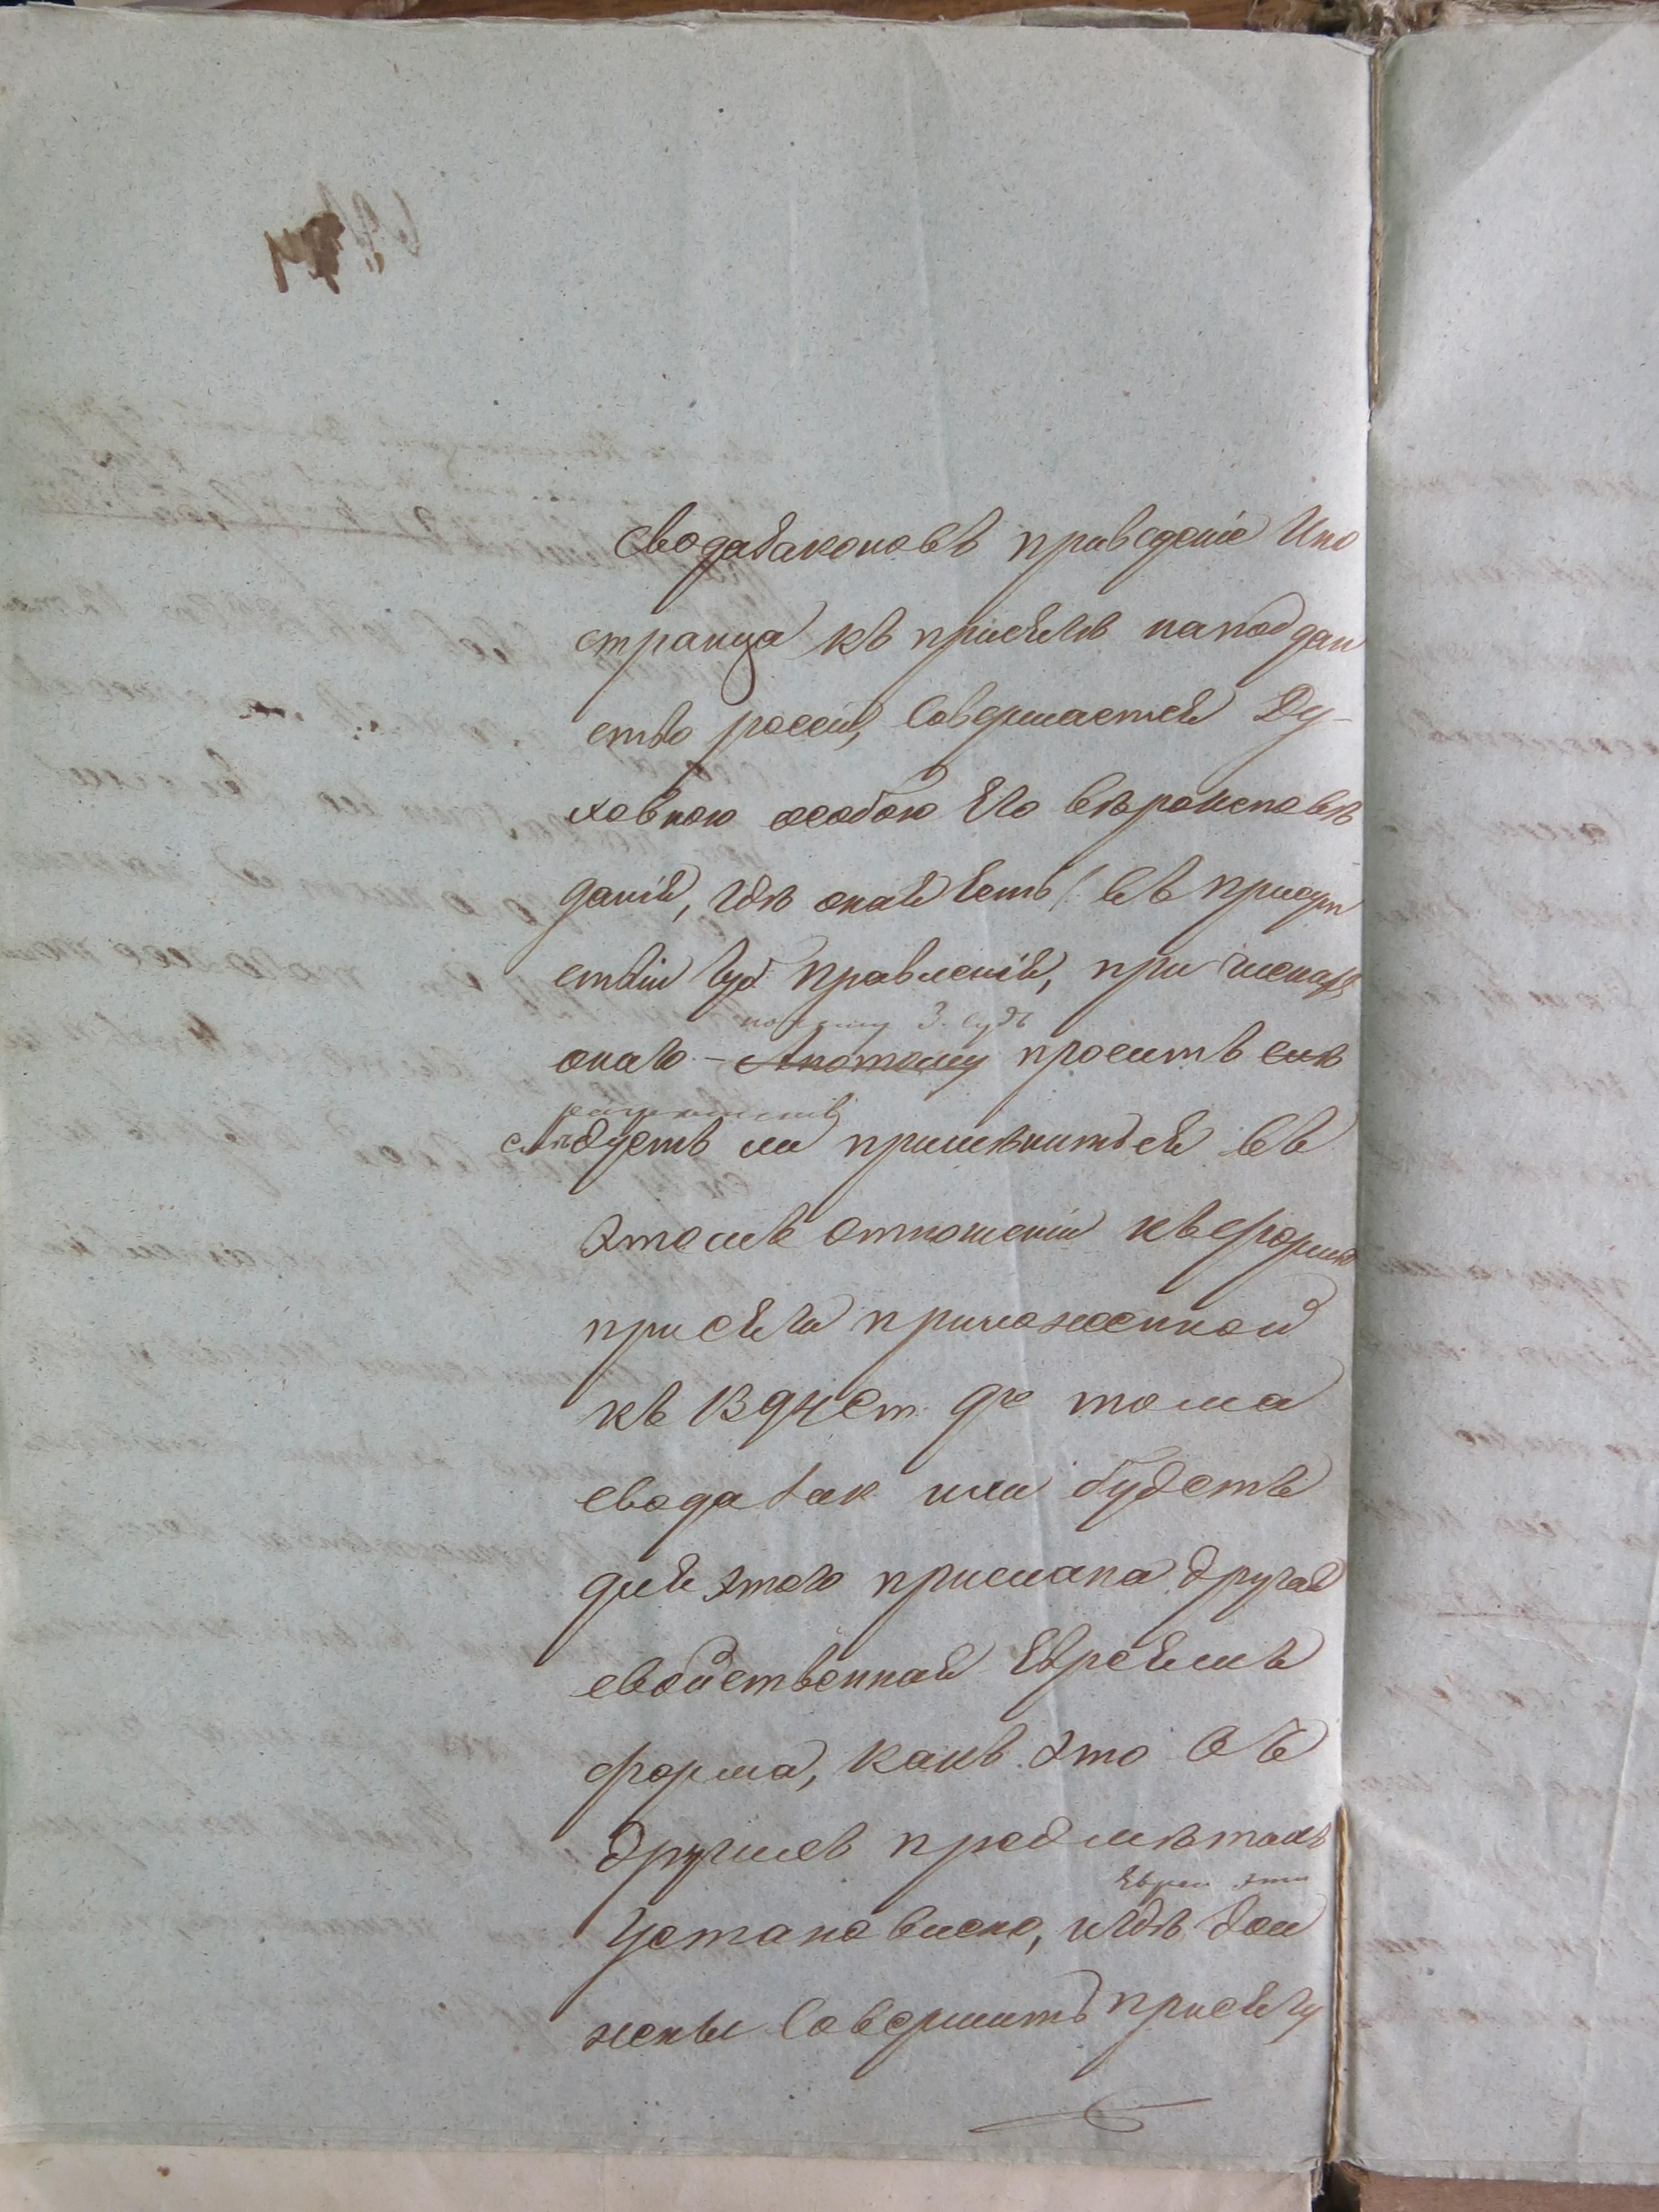 Свода Законовъ приведеніе Ино
странца къ присягѣ на поддан
ство россіи, совершается Ду-
ховною особою Его вѣроисповѣ
данія, гдѣ оная есть, въ присут
ствіи Губ Правленія, при членахъ
онаго – А потому проситъ
поэтому З. Судъ
слѣдуетъ ли примѣниться въ
этомъ отношеніи къ формѣ
присяги приложенной
къ 1394 Ст. 9го тома
свода Зак или будетъ
для этого прислана другая
свойственная Евреямъ
форма, какъ это въ
другихъ предмѣтахъ
Евреи эти
установлено, и гдѣ дол
жны совершить присягу